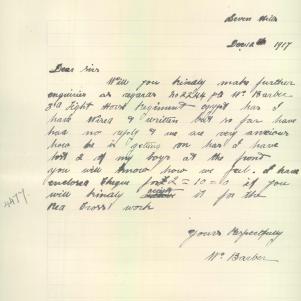 Seven Hills
Dec 12th 1917
Dear Sirs
Will you kindly make further
enquiries as regards No 2244 Pte Wm Barber
3rd Light Horse Regiment egypt has I
have Wired & written but so far have
had no reply & we are very anxious
how he is getting on has I have
lost 2 of my boys at the front
you will know how we feel. I have
enclosed Cheque for £2=10=0 if you
will kindly it for the
Red Cross work
4477.
Yours Respectfully
Wm Barber